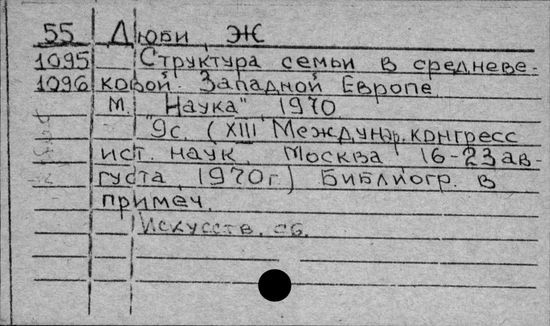 55 Дюби, Ж
1095 Структура семьи в средневе-
1096 ковой Западной Европе.
М. "Наука", 1970
9с. (XIII Междунар. конгресс
ист. наук. Москва 16-23 ав-
густа 1970г.) Библиогр. в
примеч.
Искусств. сб.